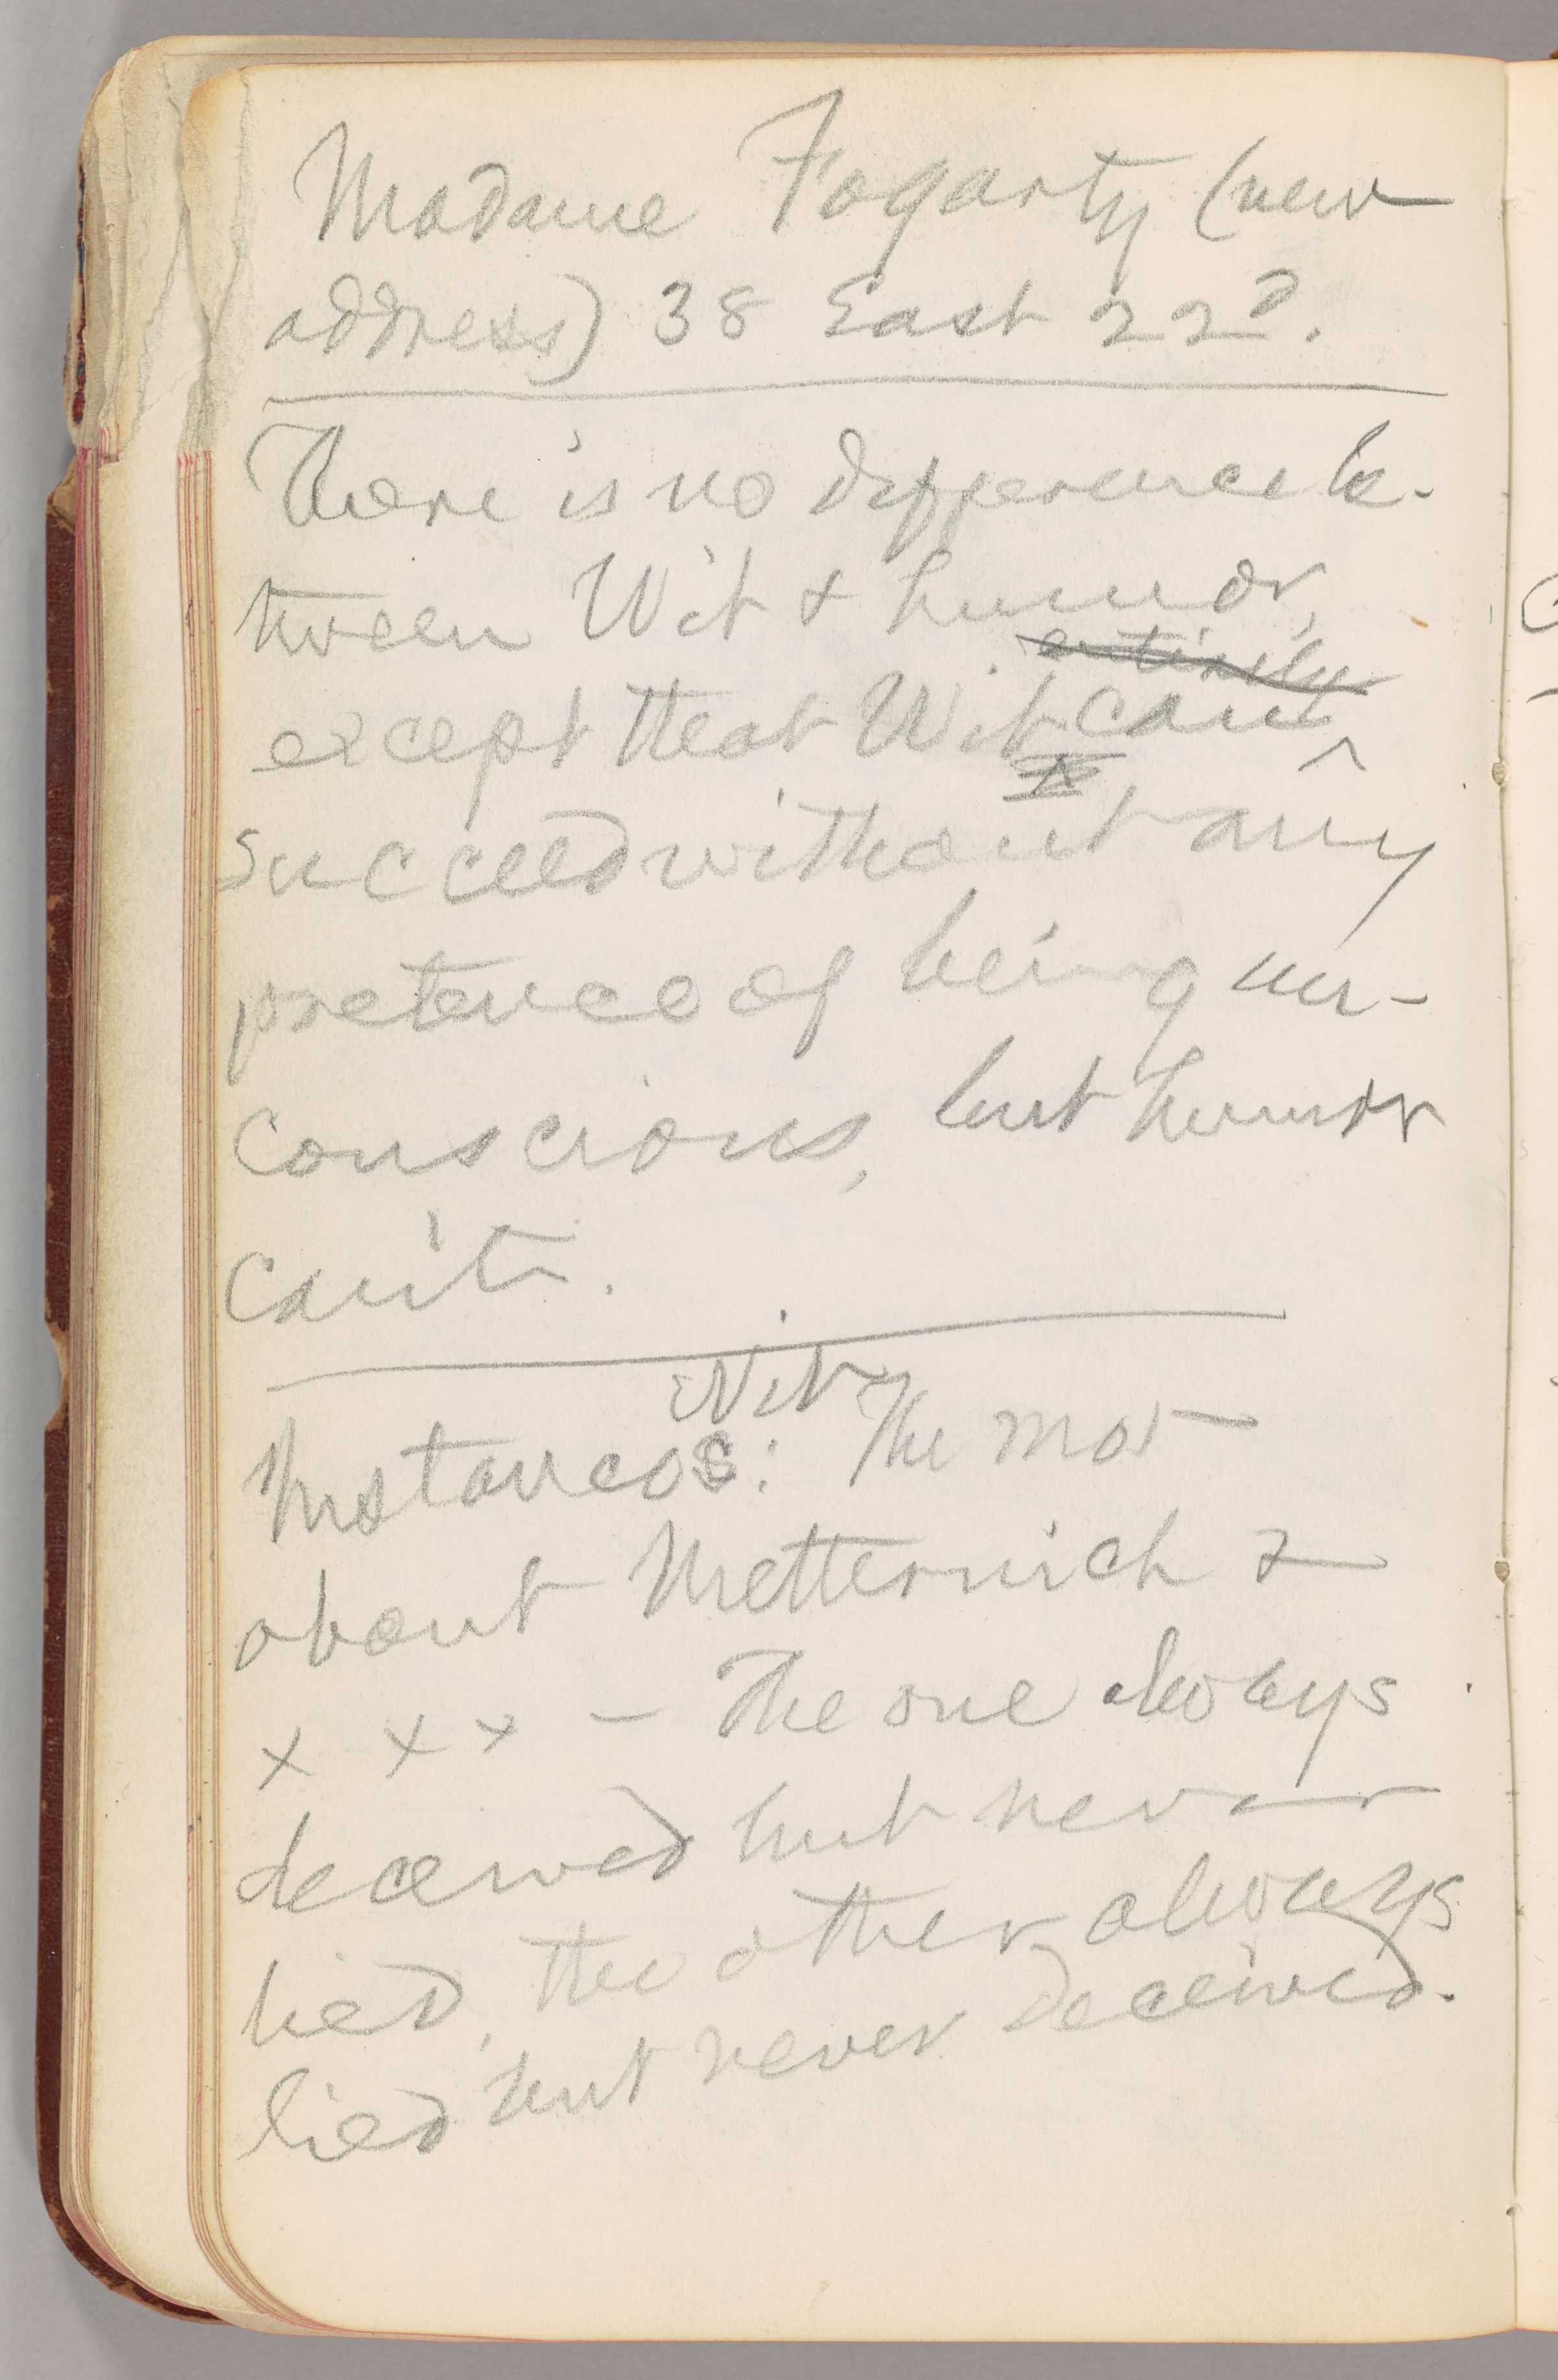 Madame Fogarty (new
address) 38 East 22d.
There is no difference be-
tween Wit & humor,
entirely
except that Wit can
succeed without any
pretence of being un-
conscious, but humor
can't.
Wit
Instances: The mot
about Metternich &
x x x — The one always
deceived but never
lied, the other always
lied but never deceived.